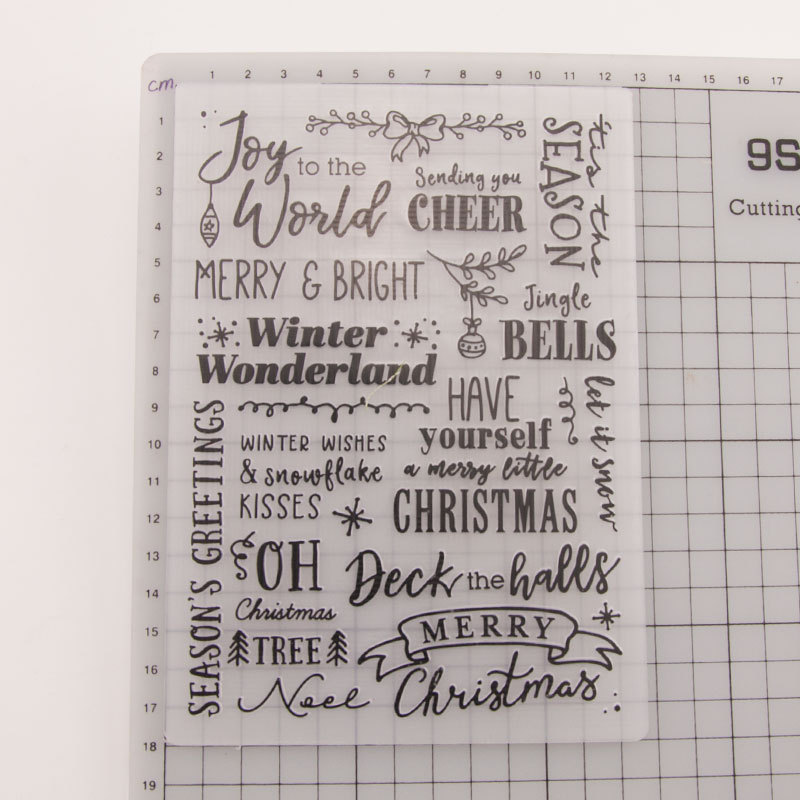 cm.
1 2 3 4 5 6 7 8 9 10 11 12 13 14 15 16 17
1
2
3
4
5
6
7
8
9
10
11
12
13
14
15
16
17
18
19
9S
Cutting
Joy
to the
World
Sending you
CHEER
'tis the
SEASON
MERRY & BRIGHT
Jingle
BELLS
Winter
Wonderland
HAVE
yourself
a merry little
CHRISTMAS
let it snow
SEASON'S GREETINGS
WINTER WISHES
& snowflake
KISSES
OH
Christmas
TREE
Deck the halls
MERRY
Christmas
Noel